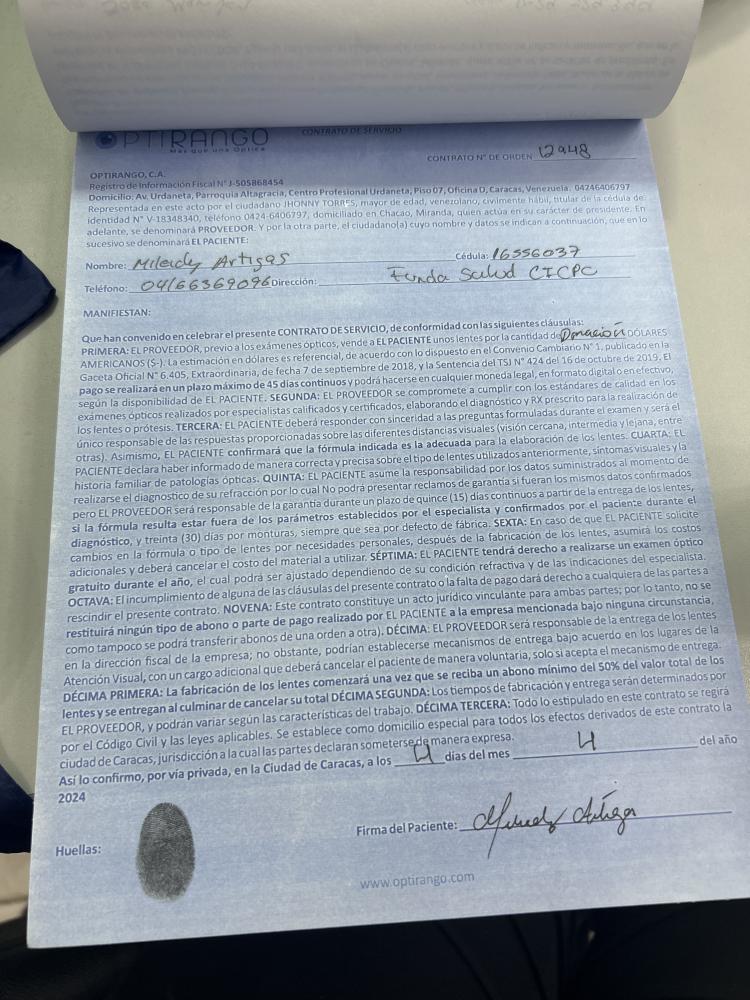 OPTIRANGO
Más que una Óptica
CONTRATO DE SERVICIO
CONTRATO N° DE ORDEN 12948
OPTIRANGO, C.A.
Registro de Información Fiscal N° J-505868454
Domicilio: Av. Urdaneta, Parroquia Altagracia, Centro Profesional Urdaneta, Piso 07, Oficina D, Caracas, Venezuela. 04246406797
Representada en este acto por el ciudadano JHONNY TORRES, mayor de edad, venezolano, civilmente hábil, titular de la cédula de
identidad N° V-18348340, teléfono 0424-6406797, domiciliado en Chacao, Miranda, quien actúa en su carácter de presidente. En
adelante, se denominará PROVEEDOR. Y por la otra parte, el ciudadano(a) cuyo nombre y datos se indican a continuación, que en lo
sucesivo se denominará EL PACIENTE:
Nombre: Mileidy Artigas Cédula: 16556037
Teléfono: 04166369096 Dirección: Funda Salud CICPC
MANIFIESTAN:
Que han convenido en celebrar el presente CONTRATO DE SERVICIO, de conformidad con las siguientes cláusulas:
PRIMERA: EL PROVEEDOR, previo a los exámenes ópticos, vende a EL PACIENTE unos lentes por la cantidad de Donación DÓLARES
AMERICANOS ($-). La estimación en dólares es referencial, de acuerdo con lo dispuesto en el Convenio Cambiario N° 1, publicado en la
Gaceta Oficial N° 6.405, Extraordinaria, de fecha 7 de septiembre de 2018, y la Sentencia del TSJ N° 424 del 16 de octubre de 2019. El
pago se realizará en un plazo máximo de 45 días continuos y podrá hacerse en cualquier moneda legal, en formato digital o en efectivo,
según la disponibilidad de EL PACIENTE. SEGUNDA: EL PROVEEDOR se compromete a cumplir con los estándares de calidad en los
exámenes ópticos realizados por especialistas calificados y certificados, elaborando el diagnóstico y RX prescrito para la realización de
los lentes o prótesis. TERCERA: EL PACIENTE deberá responder con sinceridad a las preguntas formuladas durante el examen y será el
único responsable de las respuestas proporcionadas sobre las diferentes distancias visuales (visión cercana, intermedia y lejana, entre
otras). Asimismo, EL PACIENTE confirmará que la fórmula indicada es la adecuada para la elaboración de los lentes. CUARTA: EL
PACIENTE declara haber informado de manera correcta y precisa sobre el tipo de lentes utilizados anteriormente, síntomas visuales y la
historia familiar de patologías ópticas. QUINTA: EL PACIENTE asume la responsabilidad por los datos suministrados al momento de
realizarse el diagnostico de su refracción por lo cual No podrá presentar reclamos de garantía si fueran los mismos datos confirmados
pero EL PROVEEDOR será responsable de la garantía durante un plazo de quince (15) días continuos a partir de la entrega de los lentes,
si la fórmula resulta estar fuera de los parámetros establecidos por el especialista y confirmados por el paciente durante el
diagnóstico, y treinta (30) días por monturas, siempre que sea por defecto de fábrica. SEXTA: En caso de que EL PACIENTE solicite
cambios en la fórmula o tipo de lentes por necesidades personales, después de la fabricación de los lentes, asumirá los costos
adicionales y deberá cancelar el costo del material a utilizar. SÉPTIMA: EL PACIENTE tendrá derecho a realizarse un examen óptico
gratuito durante el año, el cual podrá ser ajustado dependiendo de su condición refractiva y de las indicaciones del especialista.
OCTAVA: El incumplimiento de alguna de las cláusulas del presente contrato o la falta de pago dará derecho a cualquiera de las partes a
rescindir el presente contrato. NOVENA: Este contrato constituye un acto jurídico vinculante para ambas partes; por lo tanto, no se
restituirá ningún tipo de abono o parte de pago realizado por EL PACIENTE a la empresa mencionada bajo ninguna circunstancia,
como tampoco se podrá transferir abonos de una orden a otra). DÉCIMA: EL PROVEEDOR será responsable de la entrega de los lentes
en la dirección fiscal de la empresa; no obstante, podrían establecerse mecanismos de entrega bajo acuerdo en los lugares de la
Atención Visual, con un cargo adicional que deberá cancelar el paciente de manera voluntaria, solo si acepta el mecanismo de entrega.
DÉCIMA PRIMERA: La fabricación de los lentes comenzará una vez que se reciba un abono mínimo del 50% del valor total de los
lentes y se entregan al culminar de cancelar su total DÉCIMA SEGUNDA: Los tiempos de fabricación y entrega serán determinados por
EL PROVEEDOR, y podrán variar según las características del trabajo. DÉCIMA TERCERA: Todo lo estipulado en este contrato se regirá
por el Código Civil y las leyes aplicables. Se establece como domicilio especial para todos los efectos derivados de este contrato la
ciudad de Caracas, jurisdicción a la cual las partes declaran someterse de manera expresa.
Así lo confirmo, por vía privada, en la Ciudad de Caracas, a los 4 días del mes 4 del año
2024
Huellas:
Firma del Paciente: Mileidy Artigas
www.optirango.com